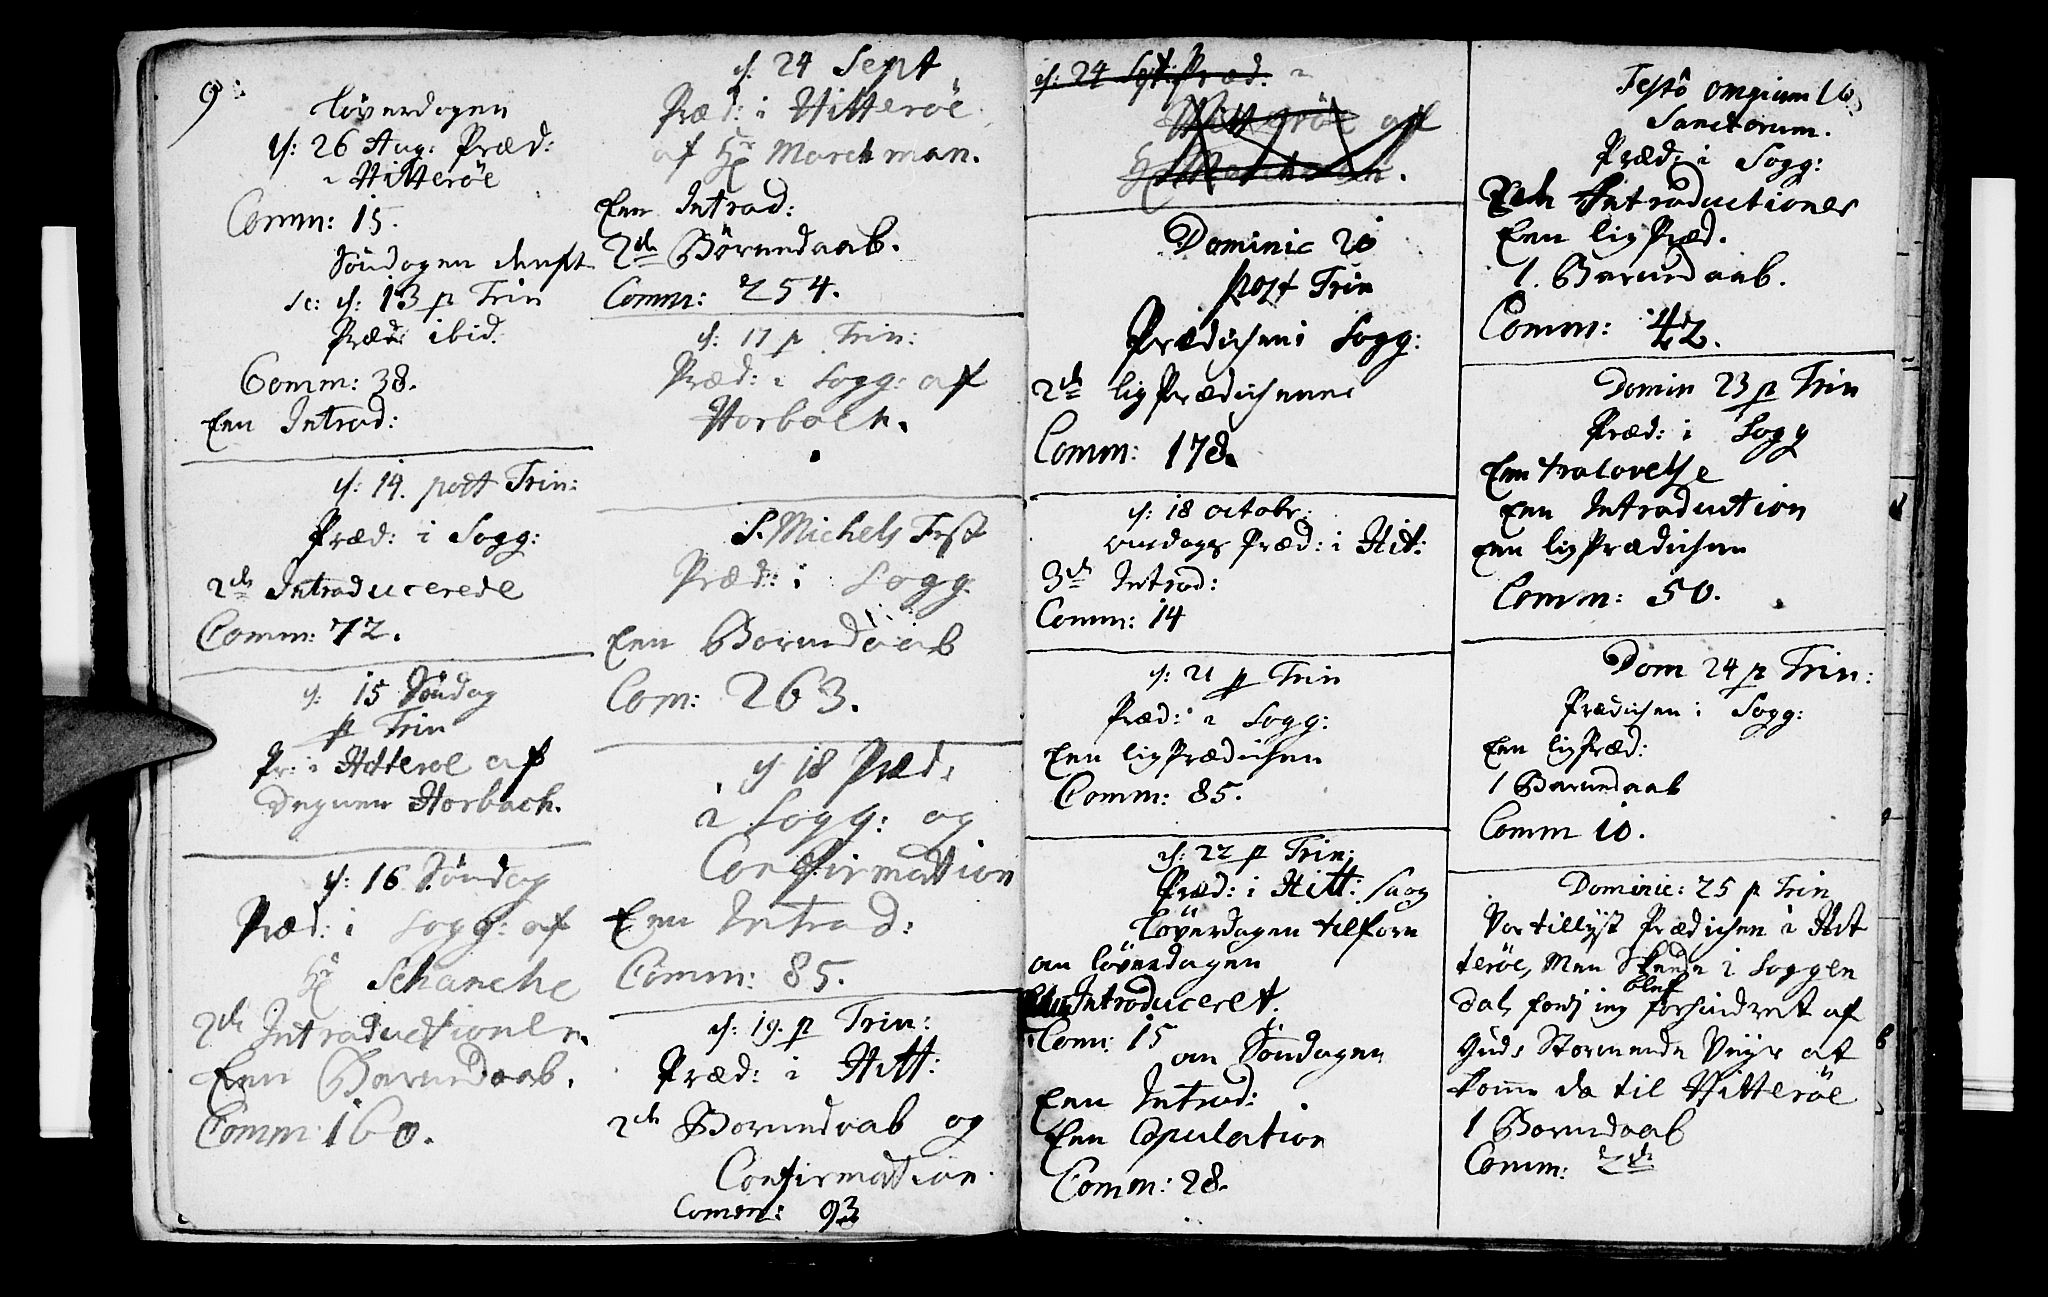 9
Löverdagen
d: 26 Aug: Præd:
i Hitteröe
Comm: 15.
Söndagen dernest
sc: d: 13 p Trin
Præd: ibid.
Comm: 38.
Een Introd:
d: 14. post Trin:
Præd: i Sogg:
2de Introducerede
Comm: 72.
d: 15 Söndag
p Trin
Pr: i Hitteroe af
Degnen Horbach.
d: 16 Söndag
Præd: i Sogg: af
Hr Schanche
2de Introductioner.
Een Barnedaab.
Comm: 160.
d: 24 Sept
Præd: i Hitteröe
af Hr Marchman.
Een Introd:
2de Börnedaab.
Comm: 254.
d: 17 p Trin:
Præd: i Sogg: af
Horbach.
S. Michels Fest
Præd: i Sogg.
Een Barnedaab
Com: 263.
d 18 Præd:
i Sogg: og
Confirmation
Een Introd:
Comm: 85.
d: 19. p Trin:
Præd: i Hitt:
2de Barnedaab og
Confirmation.
Comm: 93
d: 24 Sept: Præd: i
Hitteröe af
Hr Marchman.
Dominic 20
post Trin
Prædichen i Sogg:
2de ligPrædichener
Comm: 178.
d: 18 octobr:
onsdags Præd: i Hit:
3de Introd:
Comm: 14
d: 21 p Trin
Præd: i Sogg:
Een ligPrædichen
Comm: 85.
d: 22 p Trin:
Præd: i Hitt: saog
Löverdagen tilforn
om löverdagen
Introduceret.
Comm: 15
om Söndagen
Een Introd:
Een Copulation
Comm: 28.
Festo omnium 10
Sanctorum.
Præd: i Sogg:
2de Introductioner
Een ligPræd.
1. Barnedaab.
Comm: 42.
Domin 23 p Trin
Præd: i Sogg
Een trolovelse
Een Introduction
Een ligPrædichen
Comm: 50.
Dom 24 p Trin:
Prædichen i Sogg:
Een ligPræd:
1 Barnedaab
Comm 10.
Dominic: 25 p Trin
Var tillyst Prædichen i Hit
teröe, Men Skeede i Soggen
dal, fordj ieg blef forhindret af
Guds Stormende Veyr at
komme da til Hitteröe
1 Barnedaab
Comm: 2de